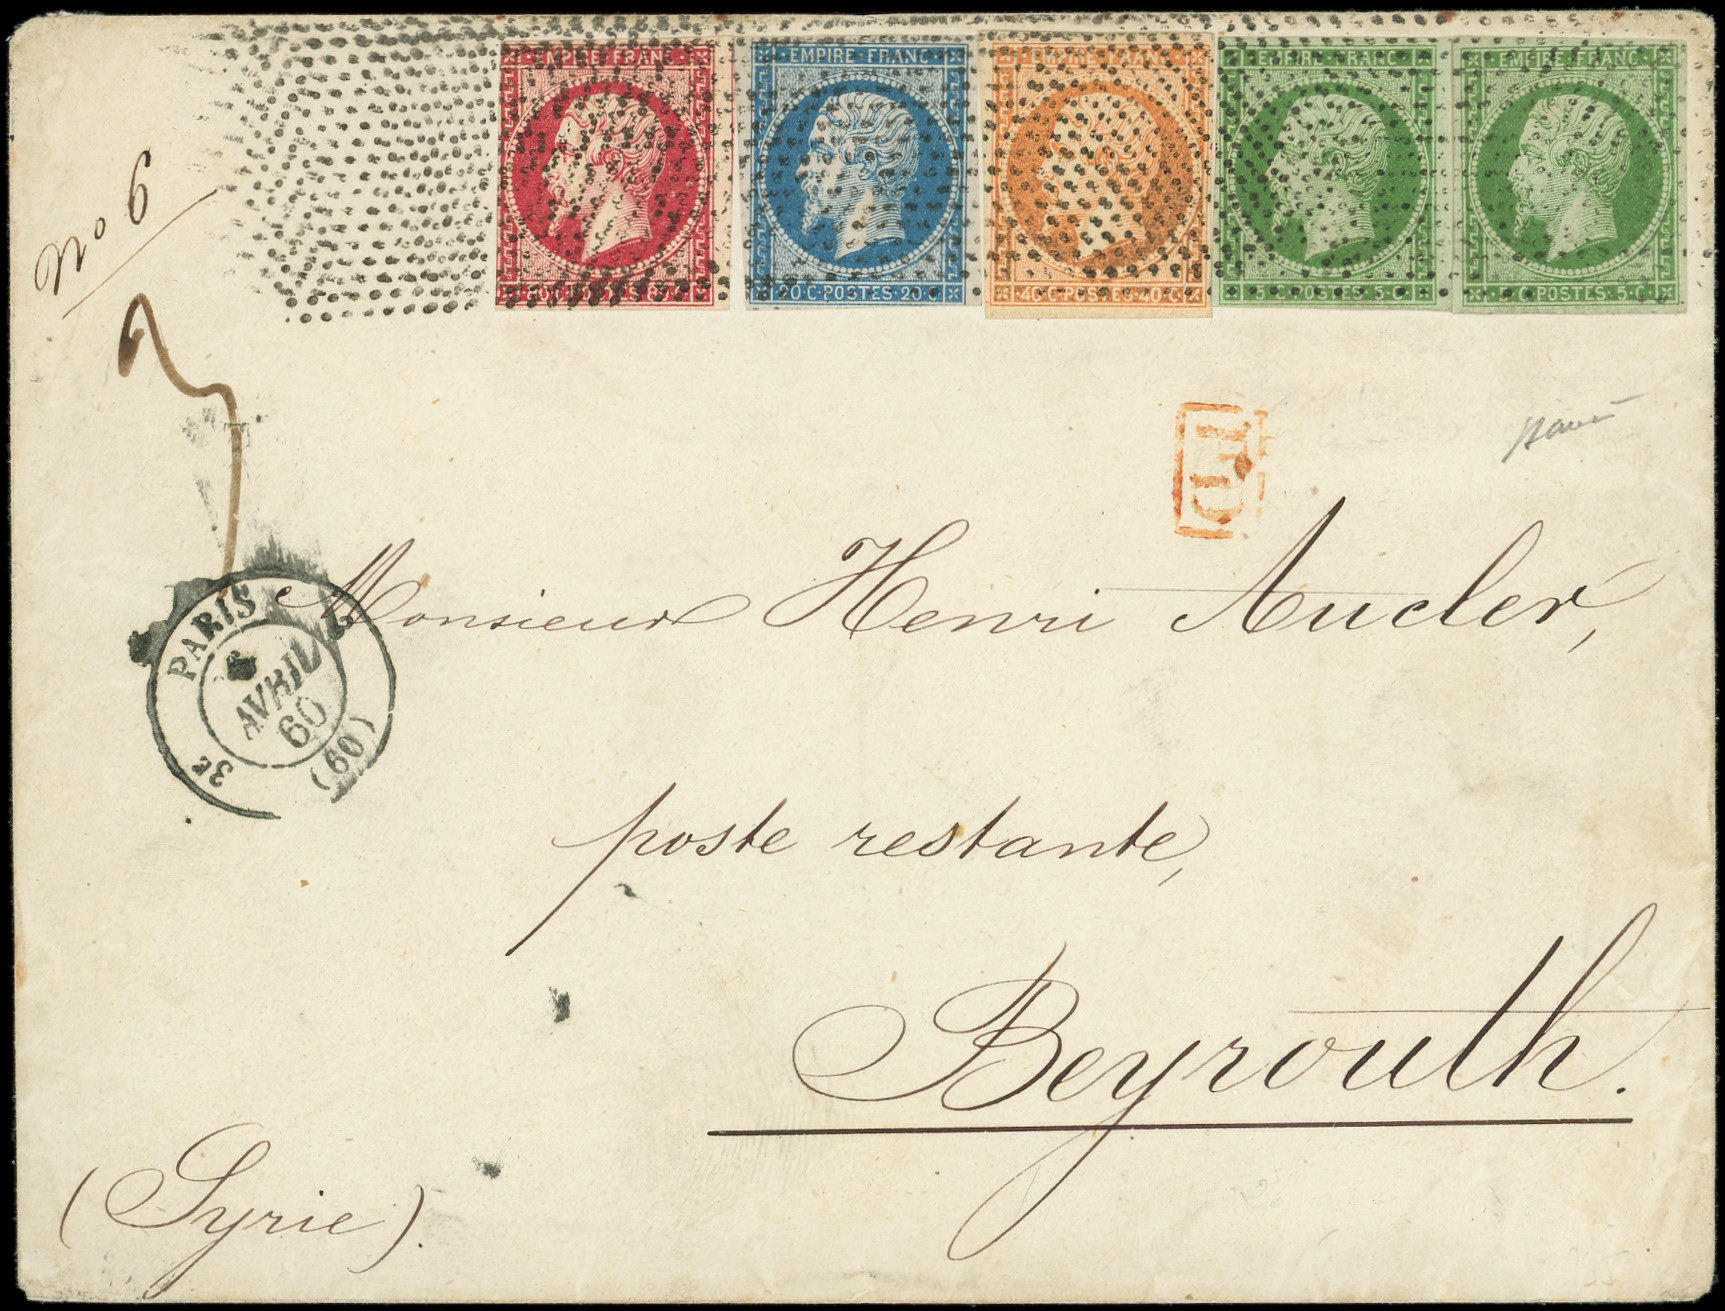 EMPIRE FRANC
EMPIRE FRANC
EMPIRE FRANC
EMPIRE FRANC
EMPIRE FRANC
20 C POSTES 20 C
40 C POSTES 40 C
5 C POSTES 5 C
C POSTES 5 C
No 6
3
PD
PARIS
6
AVRIL
60
3E
(60)
Monsieur Henri Aucler,
poste restante,
Beyrouth.
(Syrie).